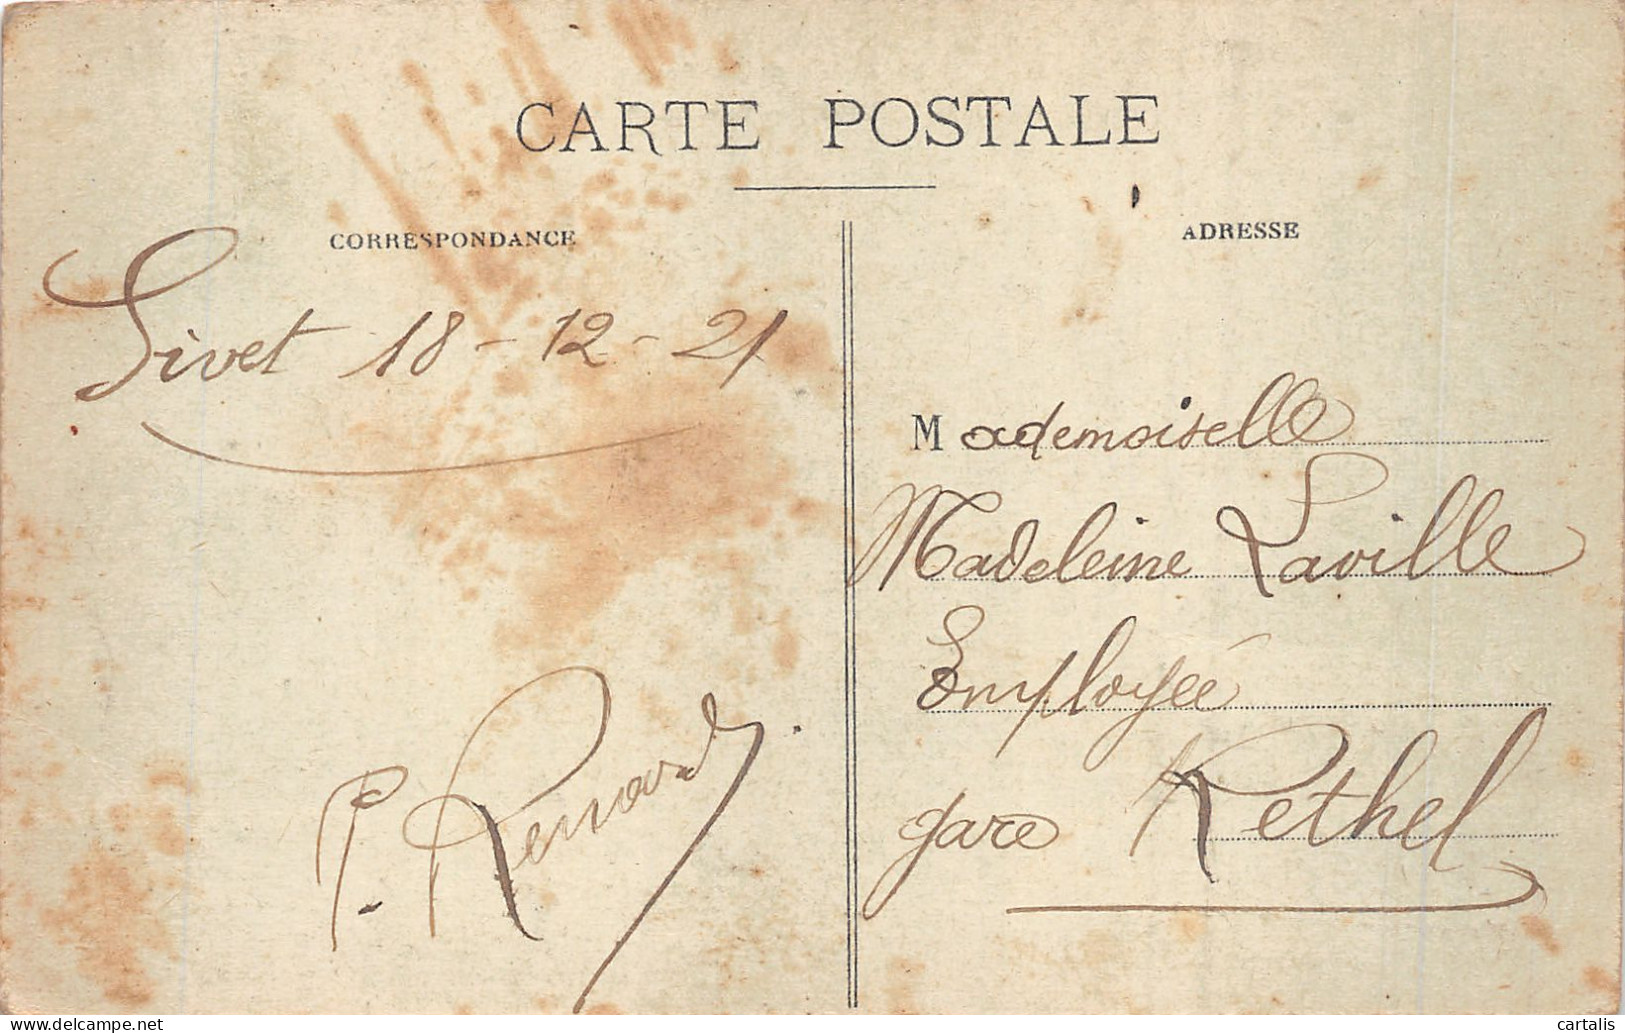 CARTE POSTALE
CORRESPONDANCE
Givet 18-12-21
P. Renard
ADRESSE
Mademoiselle
Madeleine Laville
Employée
gare Rethel
delcampe.net
cartalis